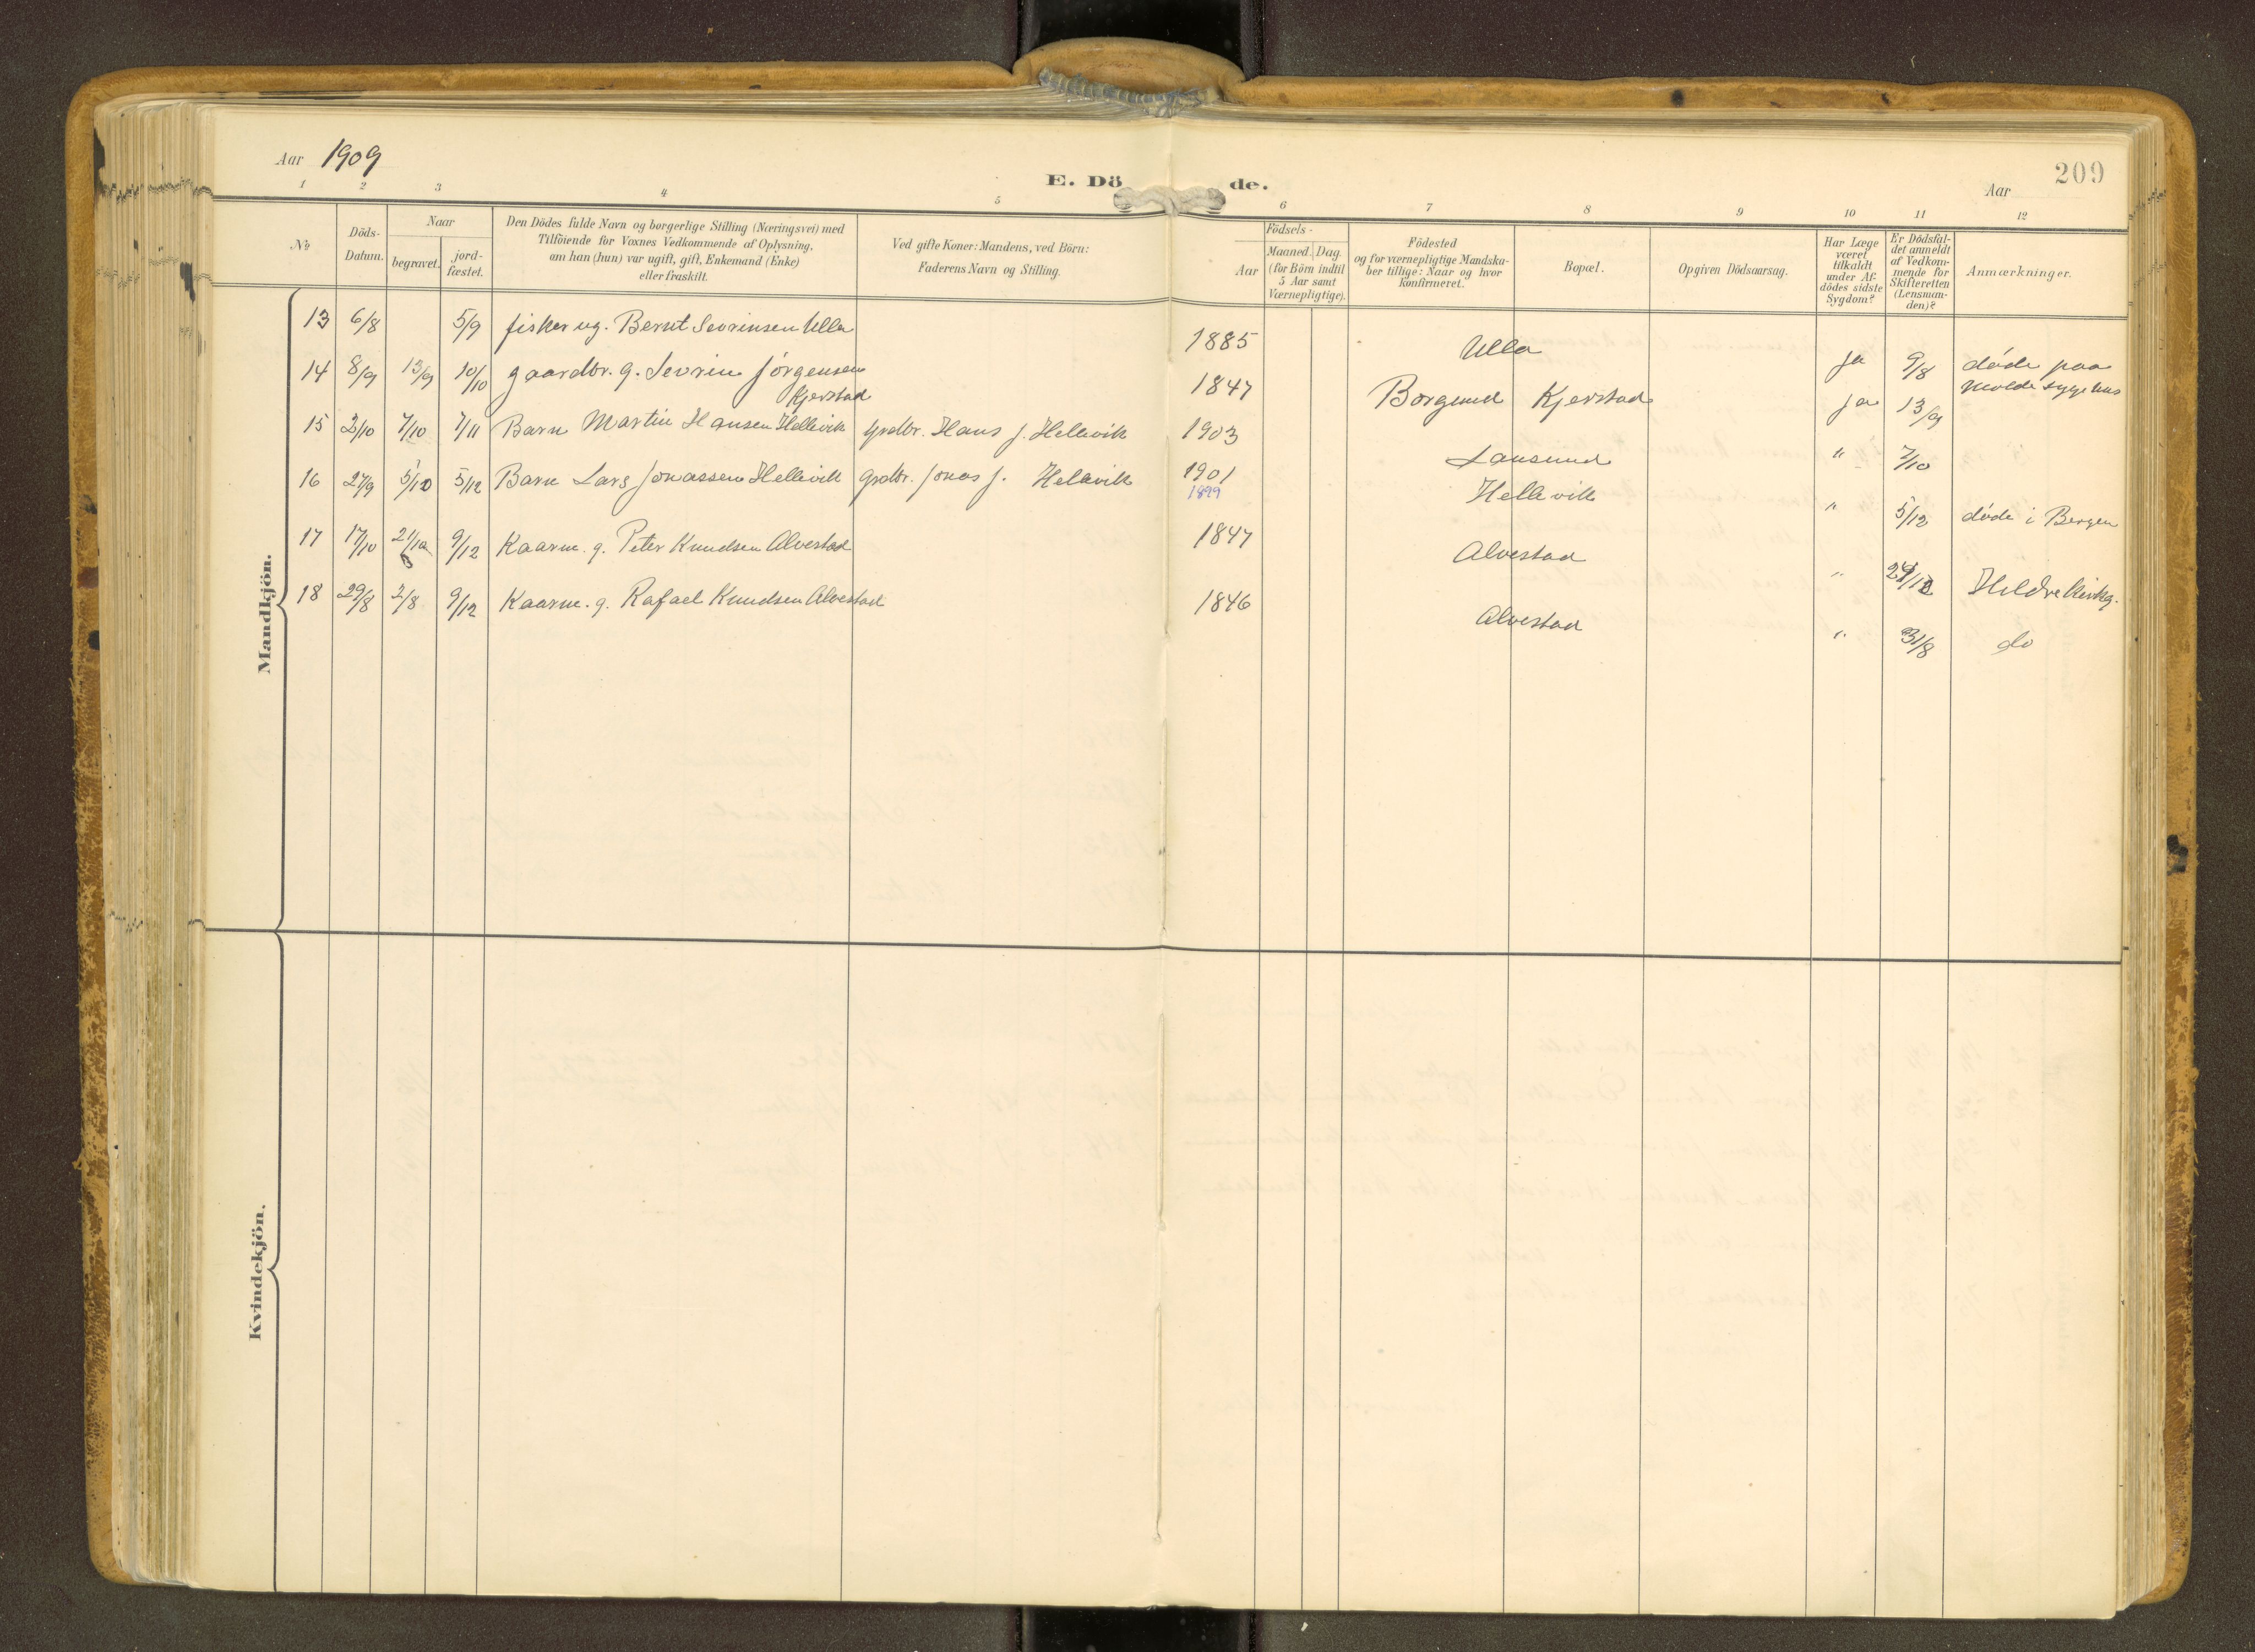 Aar 1909
E. Dö de.
209
Aar
1 2 3 4 5 6 7 8 9 10 11 12
No
Döds-Datum.
Naar
begravet.
jordfæstet.
Den Dödes fulde Navn og borgerlige Stilling (Næringsvei) med
Tilföiende for Voxnes Vedkommende af Oplysning,
om han (hun) var ugift, gift, Enkemand (Enke)
eller fraskilt.
Ved gifte Koner: Mandens, ved Börn:
Faderens Navn og Stilling.
Födsels-
Aar
Maaned. Dag.
(for Börn indtil
5 Aar samt
Værnepligtige).
Födested
og for værnepligtige Mandska-
ber tillige: Naar og hvor
konfirmeret.
Bopæl.
Opgiven Dödsaarsag.
Har Læge
været
tilkaldt
under Af-
dödes sidste
Sygdom?
Er Dödsfal-
det anmeldt
af Vedkom-
mende for
Skifteretten
(Lensman-
den)?
Anmærkninger.
Mandkjön.
13 6/8 5/9 fisker ug. Bernt Sevrinsen Ulla 1885 Ulla ja 9/8 døde paa
Molde sygehus
14 8/9 13/9 10/10 gaardbr. g. Sevrin Jørgensen
Kjerstad 1847 Borgund Kjerstad ja 13/9
15 2/10 7/10 7/11 Barn Martin Hansen Hellevik grdbr. Hans J. Hellevik 1903 Lausund " 7/10
16 27/9 5/10 5/12 Barn Lars Jonassen Hellevik grdbr. Jonas J. Hellevik 1901
1899 Hellevik " 5/12 døde i Bergen
17 17/10 21/10 9/12 Kaarm. g. Peter Knudsen Alvestad 1847 Alvestad " Hildre Kirkg.
18 29/8 2/8 9/12 Kaarm. g. Rafael Knudsen Alvestad 1846 Alvestad " 31/8 do
Kvindekjön.